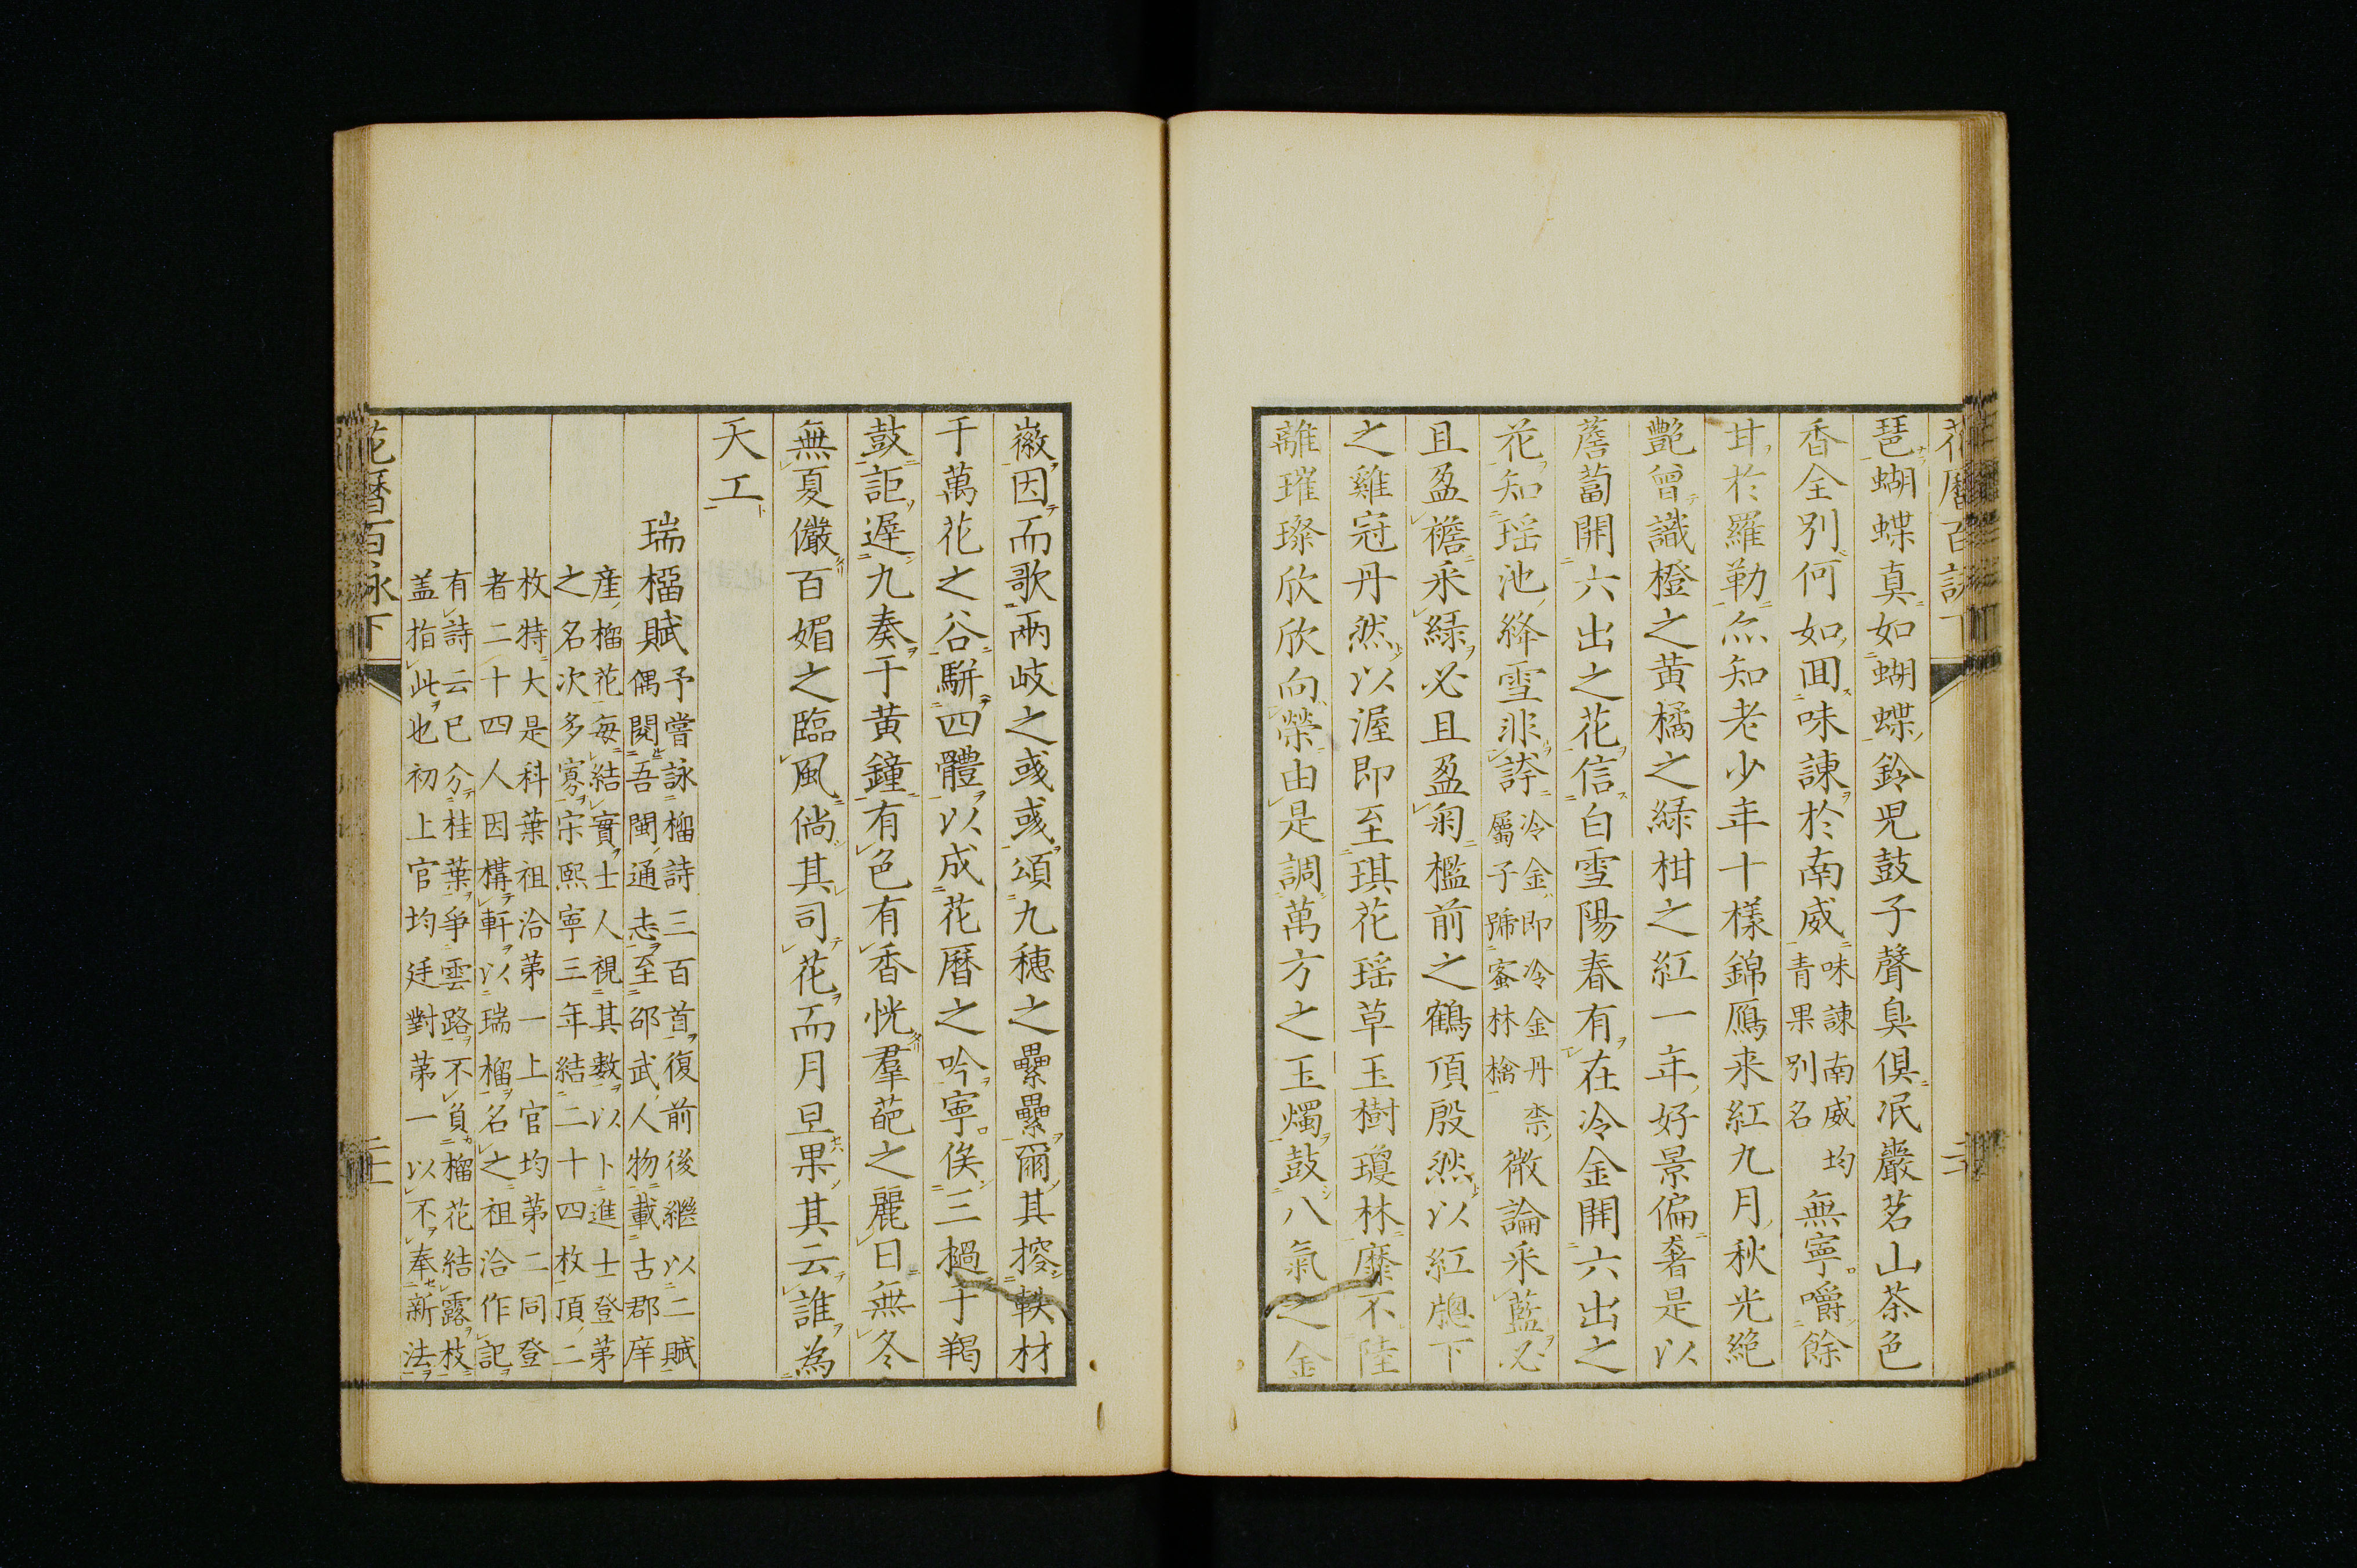 琶蝴蝶真如蝴蝶鈴兒鼓子聲臭俱冺巖茗山茶色
香全別何如囬味諫於南威味諫南威均青果別名無寧嚼餘
甘於羅勒尒知老少年十樣錦鴈来紅九月秋光絶
艷曾識橙之黄橘之緑柑之紅一年好景偏奢是以
薝蔔開六出之花信白雪陽春有在冷金開六出之
花知瑶池絳雪非誇冷金即冷金丹柰屬子號蜜林檎微論采藍必
且盈襜采緑必且盈匊檻前之鶴頂殷然以紅牕下
之雞冠丹然以渥即至琪花瑶草玉樹瓊林靡不陸
離璀璨欣欣向榮由是調萬方之玉燭鼓八氣之金
徽因而歌兩岐之彧彧頌九穂之纍纍爾其摉軼材
于萬花之谷駢四體以成花曆之吟寧俟三撾于羯
鼓詎遅九奏于黄鐘有色有香恍羣葩之麗日無冬
無夏儼百媚之臨風倘其司花而月旦果其云誰為
天工
瑞榴賦予嘗詠榴詩三百首復前後繼以二賦
偶閱吾閩通志至邵武人物載古郡庠
産榴花每結實士人視其數以卜進士登第
之名次多寡宋熙寧三年結二十四枚頂二
枚特大是科葉祖洽第一上官均第二同登
者二十四人因構軒以瑞榴名之祖洽作記
有詩云已分桂葉爭雲路不負榴花結露枝
盖指此也初上官均廷對第一以不奉新法
花曆百詠下